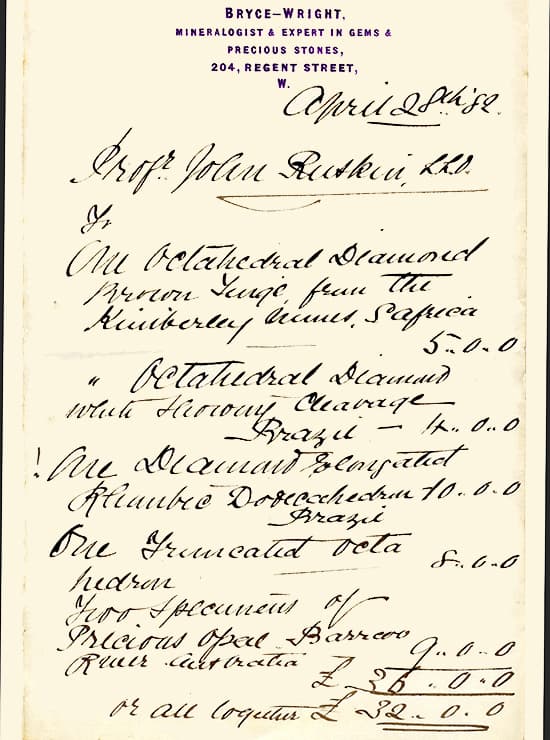 BRYCE-WRIGHT,
MINERALOGIST & EXPERT IN GEMS &
PRECIOUS STONES,
204, REGENT STREET,
W.
April 28th '82.
Profr. John Ruskin, LLD.
To
One Octahedral Diamond
Brown Tinge, from the
Kimberley mines, S africa
5..0..0
" Octahedral Diamond
white Showing Cleavage
Brazil — 4..0..0
! One Diamond Elongated
Rhombic Dodecahedron 10..0..0
Brazil
One Truncated Octa
hedron 8..0..0
Two Specimens of
Precious Opal Barrcoo
River Australia 9..0..0
£ 36..0..0
or all together £ 32..0..0